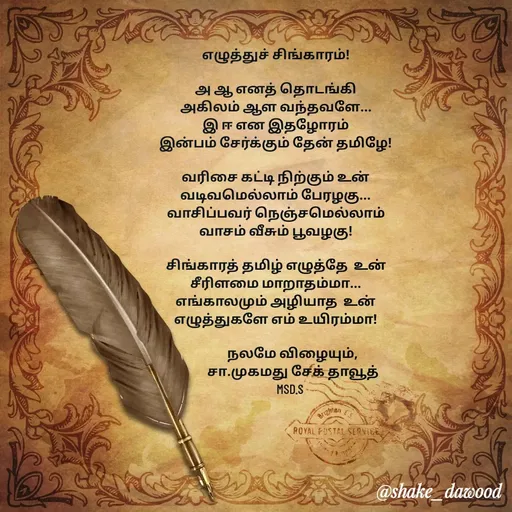 எழுத்துச் சிங்காரம்!
அ ஆ எனத் தொடங்கி
அகிலம் ஆள வந்தவளே...
இ ஈ என இதழோரம்
இன்பம் சேர்க்கும் தேன் தமிழே!
வரிசை கட்டி நிற்கும் உன்
வடிவமெல்லாம் பேரழகு...
வாசிப்பவர் நெஞ்சமெல்லாம்
வாசம் வீசும் பூவழகு!
சிங்காரத் தமிழ் எழுத்தே உன்
சீரிளமை மாறாதம்மா...
எங்காலமும் அழியாத உன்
எழுத்துகளே எம் உயிரம்மா!
நலமே விழையும்,
சா.முகமது சேக் தாவூத்
MSD,S
ROYAL POSTAL SERVICE
@shake_dawood